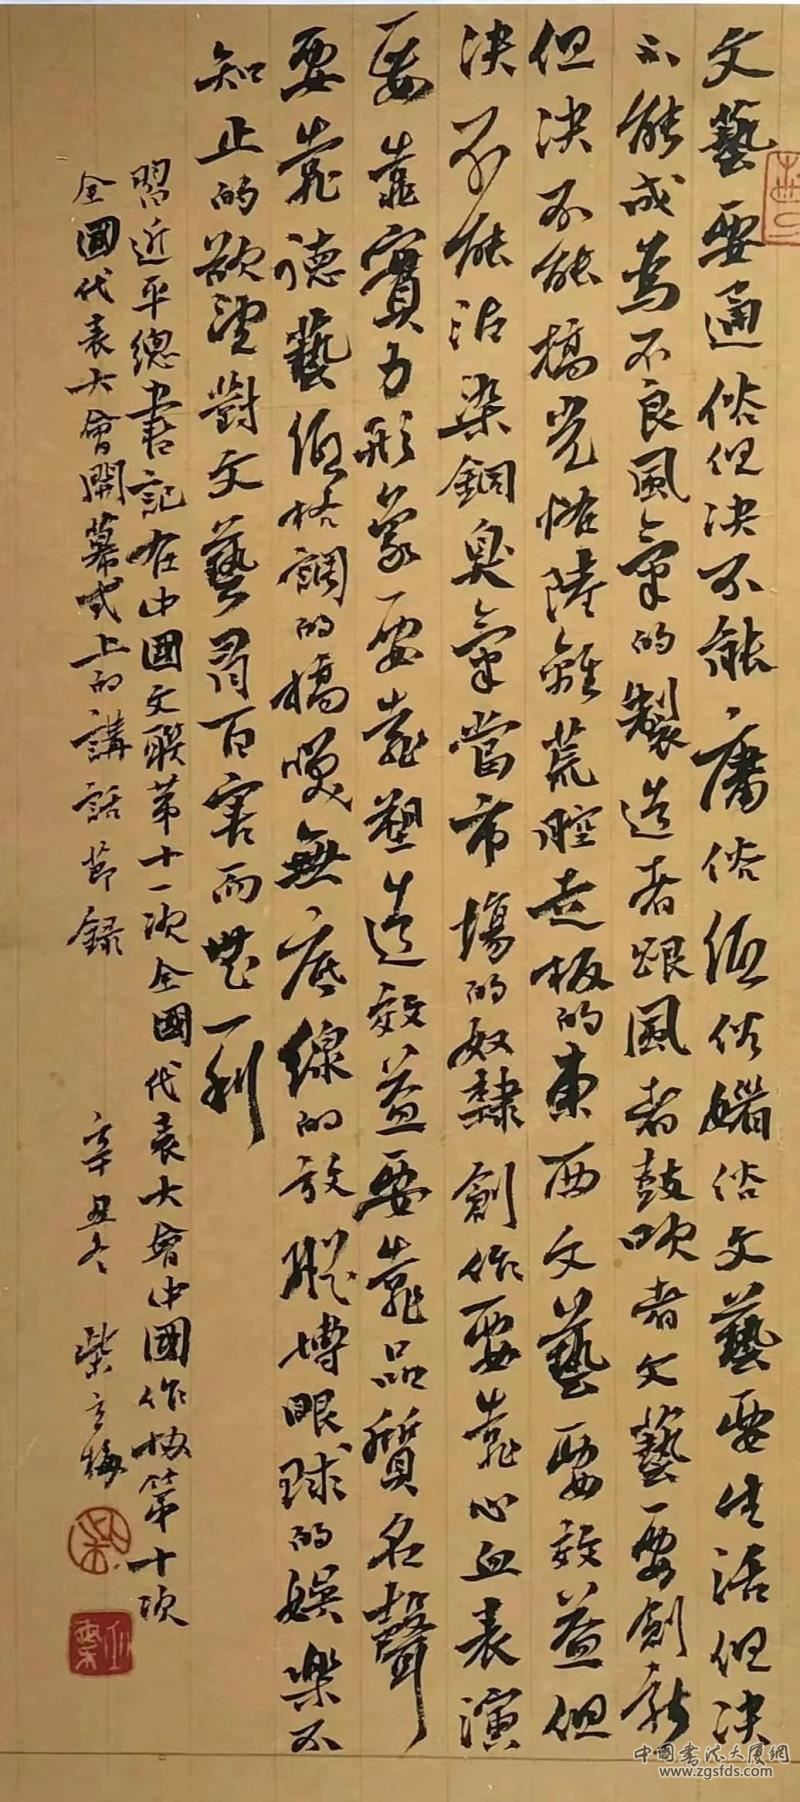 文藝要通俗但决不能庸俗低俗媚俗文藝要生活但决
不能成為不良風氣的製造者跟風者鼓吹者文藝要創新
但决不能搞光怪陸離荒腔走板的東西文藝要效益但
决不能沾染銅臭氣當市場的奴隸創作要靠心血表演
要靠實力形象要靠塑造效益要靠品質名聲
要靠德藝低格調的搞笑無底線的放縱博眼球的娛樂不
知止的欲望對文藝有百害而無一利
習近平總書記在中國文聯第十一次全國代表大會中國作協第十次
全國代表大會開幕式上的講話節錄
辛丑冬 柴立梅
中國書法大廈網
www.zgsfds.com